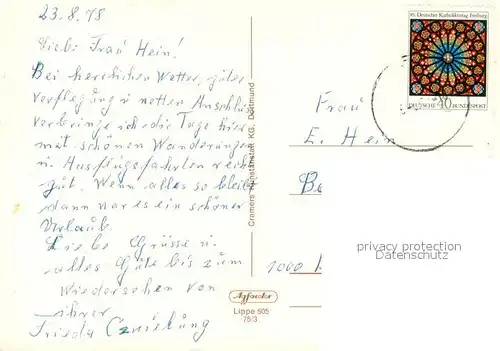 23.8.78
Liebe Frau Hein!
Bei herrlichen Wetter, guter
Verpflegung u netten Anschluß
verbringe ich die Tage hier
mit schönen Wanderungen
u. Ausflugsfahrten recht
gut. Wenn alles so bleibt
dann war es ein schöner
Urlaub.
Liebe Grüsse u.
alles Gute bis zum
Wiedersehen von
ihrer
Frieda
Cramers Kunstanstalt KG, Dortmund
85. Deutscher Katholikentag Freiburg
DEUTSCHE 40 BUNDESPOST
Frau
E. Hein
Be
1000
privacy protection
Datenschutz
Agfacolor
Lippe 505
75/3